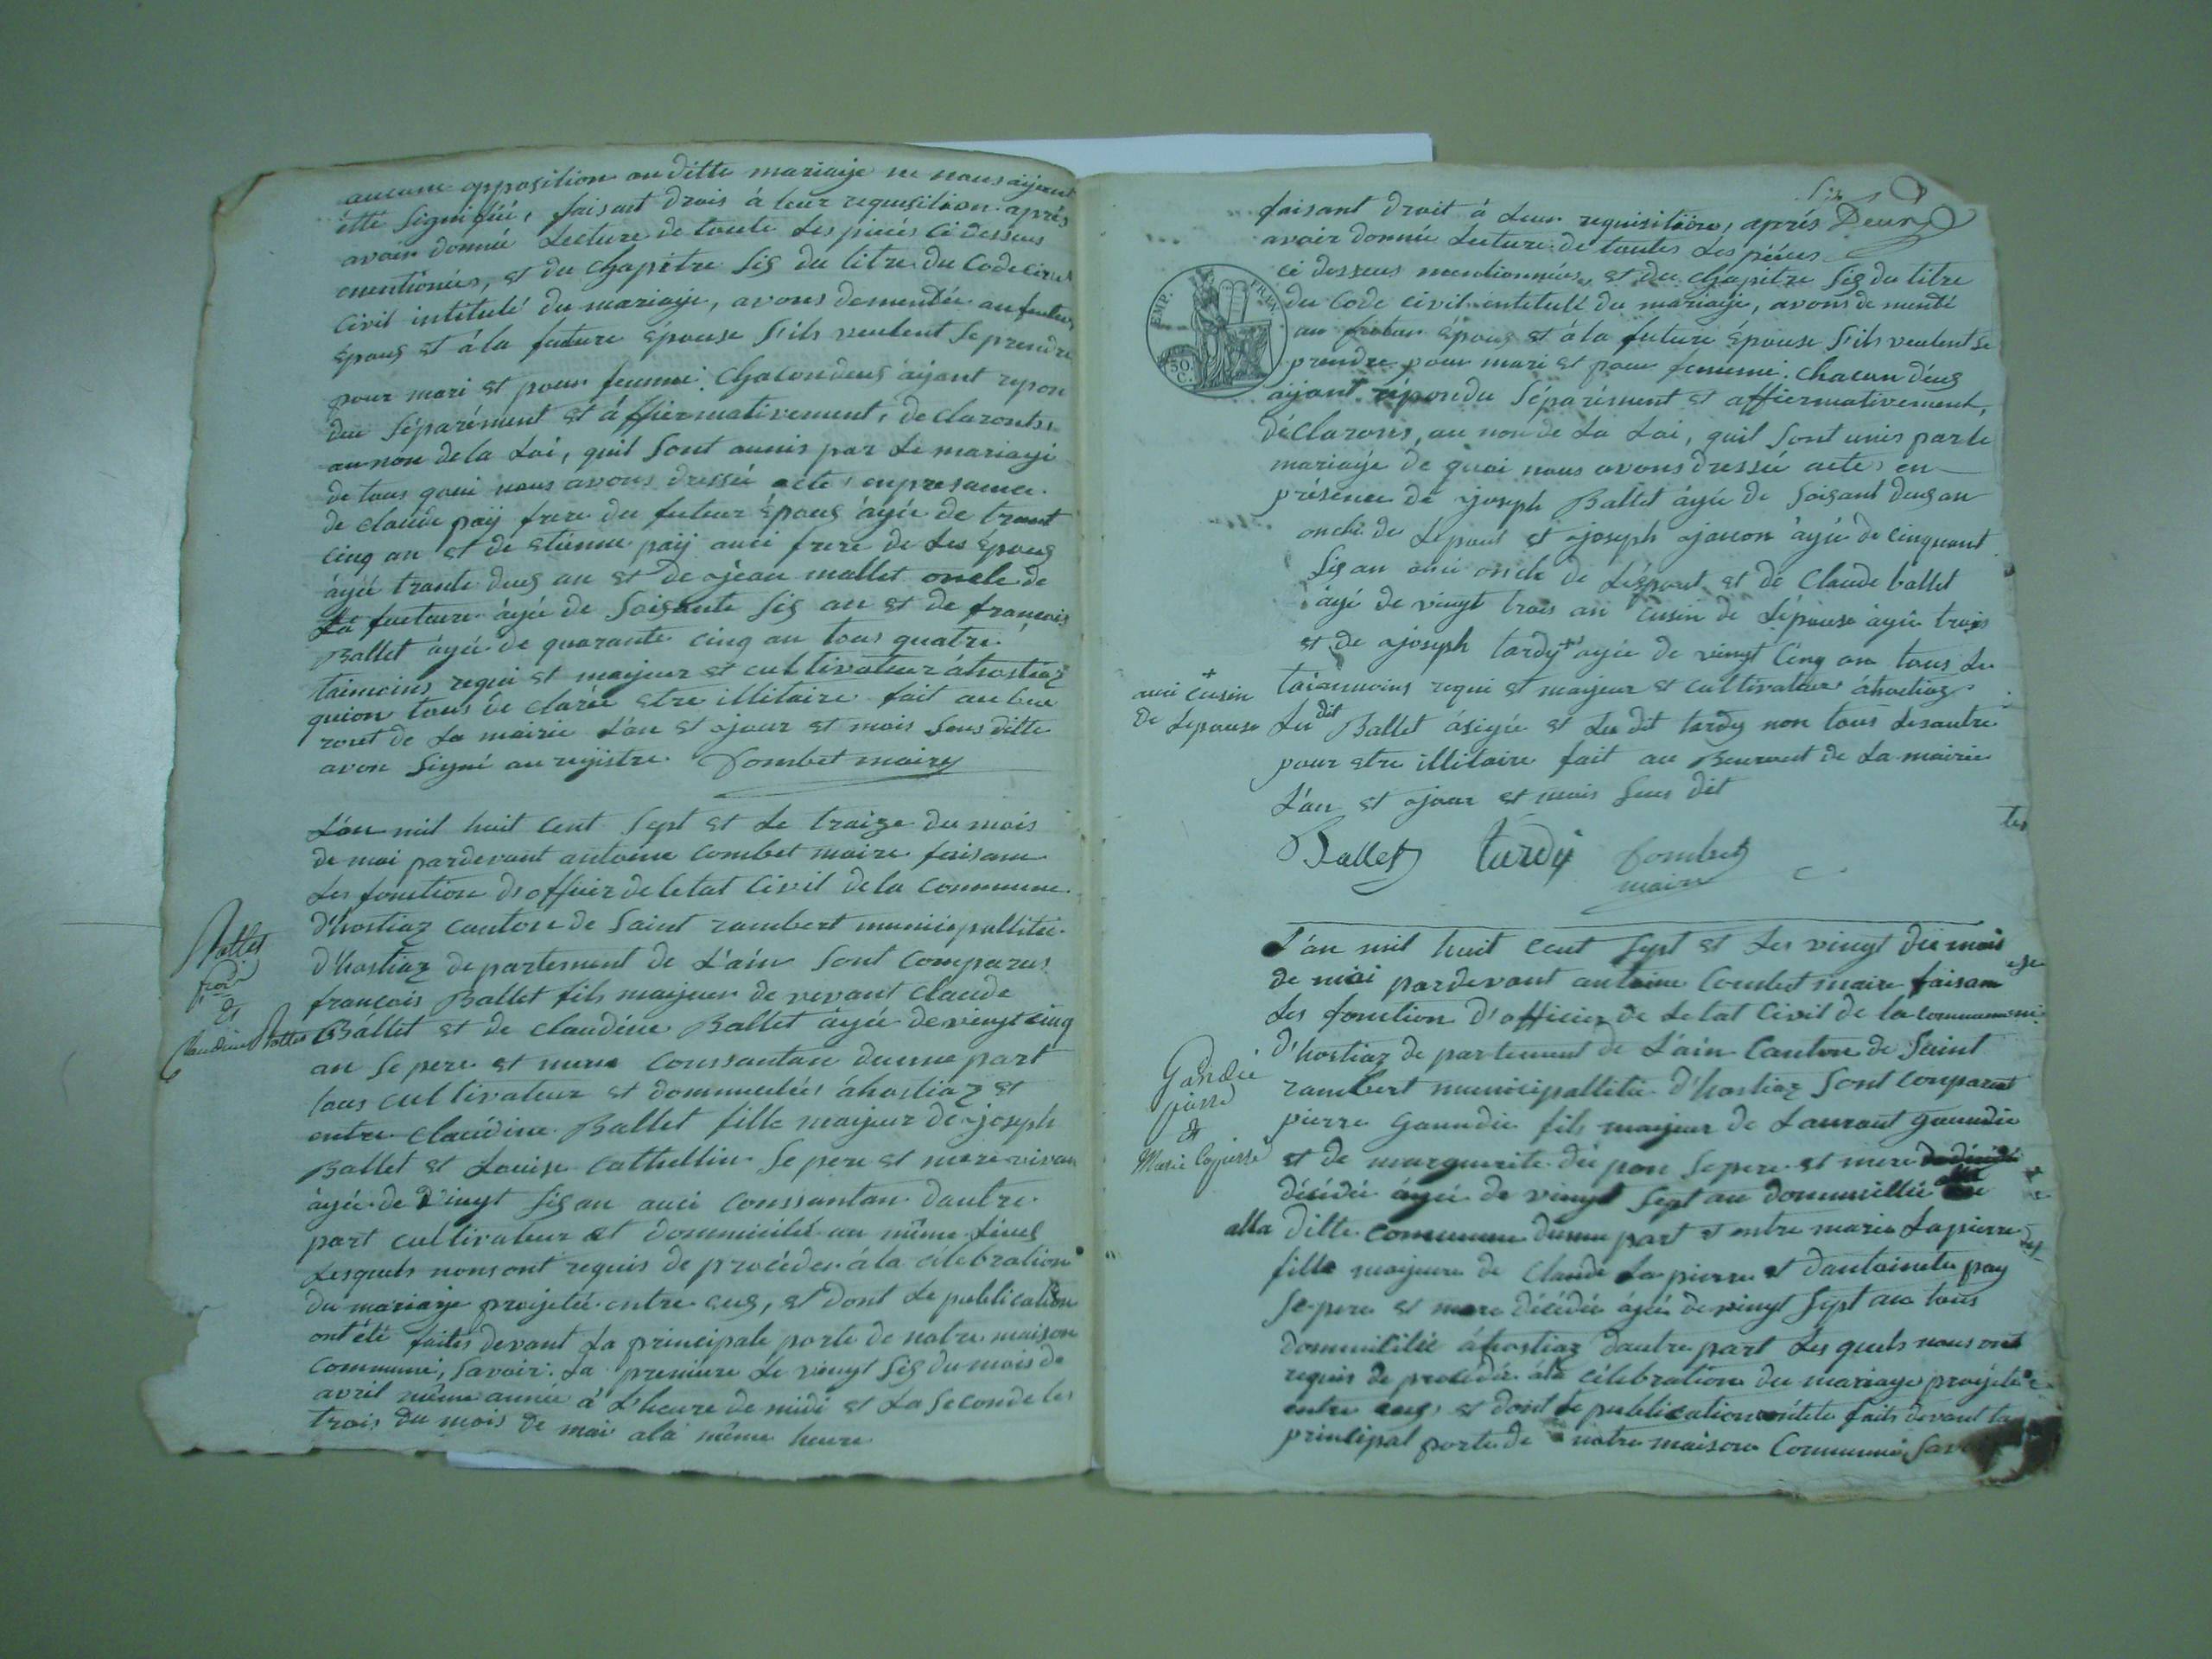 aucune opposition au ditte mariage ne nous ayent
été Signifiéé, faisant drois à leur requisition après
avoir donnée Lecture de toute Les piecés Ci dessus
mentionées, et du Chapitre Sis du titre du Code civil
Civil intitulé du mariage, avons demendée au futur
épous et à la future épouse S'ils veulent se prendre
pour mari et pour femme. Chacondeus ayant repon
deu Séparément et affiermativement, declaronts
au non de la Loi, quil Sont aunis par Le mariage
de tous quoi nous avons dressée acte, en presance
de Claude paÿ frere du futeur épous âgée de trant
cinq an et de etienne paÿ auci frere de Les epous
âgée trante deus an et de ojean mallet oncle de
La fueture âgée de Soisante Sis an et de francois
Ballet âgée de quarante cinq an tous quatre
taimoins requi et majeur et cultivateur áhostiaz
quion tous de clarée etre illitaire fait au bue
rout de La mairie L'an et ojour et mois Sous ditte
avon Signé au registre Combet maire
L'an mil huit cent Sept et Le traize du mois
de mai pardevant antoine Combet maire faisant
Les fonction d'officier de letat Civil de la Commune
d'hostiaz canton de Saint rambert municipallitée
d'hostiaz departement de L'ain Sont Comparus
francois Ballet fils majeur de vevant Claude
Ballet et de Claudine Ballet âgée de vingt cinq
an Se pere et mere Conssantan dunne part
tous cultivateur et dommicilée áhostiaz et
entre Claudine Ballet fille majeur de ojoseph
Ballet et Louise Cathellin Se pere et mere vivan
âgée de vingt Sis an auci Conssantan dautre
part cultivateur et dommicilié au même Lieus
Lesquels nous ont requis de procéder à la célébration
du mariage projetée entre eus, et dont Le publication
ont été faites devant La principale porte de notre maison
Commune, Savoir: La premiere Le vingt Sis du mois de
avril même année à L'heure de midi et La Seconde les
trois du mois de mai ala même heure
Ballet
et
Claudine Ballet
faisant droit à Leur requisitoire, aprés Deus
avoir donnée Lecture de toutes Les piéces
ci dessus mentionnées, et du Chapitre Sis du titre
du Code civil intitulé du mariage, avons de mendé
au futur épous et à la future épouse S'ils veulent Se
prendre pour mari et pour femme. Chacun d'eus
ayant répondu Séparément et affiermativement,
déclarons, au non de La Loi, quil Sont unis par le
mariage de quoi nous avons dressée acte, en
présence de ojoseph Ballet âgée de Soisant deus an
oncle de Lepous et ojoseph ojacon âgée de cinquant
Sis an auci oncle de Lépous et de Claude ballet
âgé de vingt trois an cusin de Lépouse âgée trois
et de ojoseph tardy + agée de vingt Cinq an tous Les
taiemoins requi et majeur et Cultivateur áhostiaz
Le dit Ballet ásigée et Le dit tardy non tous Lesautre
pour etre illitaire fait au Beurout de La mairie
L'an et ojour et mois Sus dit
+
auci cusin
de Lepouse
EMP. FRAN.
50.
C.
Ballet tardy Combet
maire
L'an mil huit cent Sept et Les vingt du mois
de mai pardevant antoine Combet maire faisan
Les fonction d'officier de Letat Civil de la commune
d'hostiaz de partement de L'ain Canton de Saint
rambert municipallitée d'hostiaz Sont Conparut
pierre Gaundie fils majeur de Laurant gaundie
et de marguerite du pon Sepere et mere
décédée âgée de vingt Sept an dommicillée
alla ditte commune dunne part et entre marie Lapierre
fille majeure de Claude La pierre et dantoinete pay
Se pere et mere décédée âgée de vingt Sept an tous
dommicilée áhostiaz dautre part Les quels nous ont
requis de procédée àla célébration du mariage projetée
entre eus, et dont Le publication ontété faits devant la
principal porte de notre maison Commune Sav
Gandie
pierre
et
Marie Lapierre